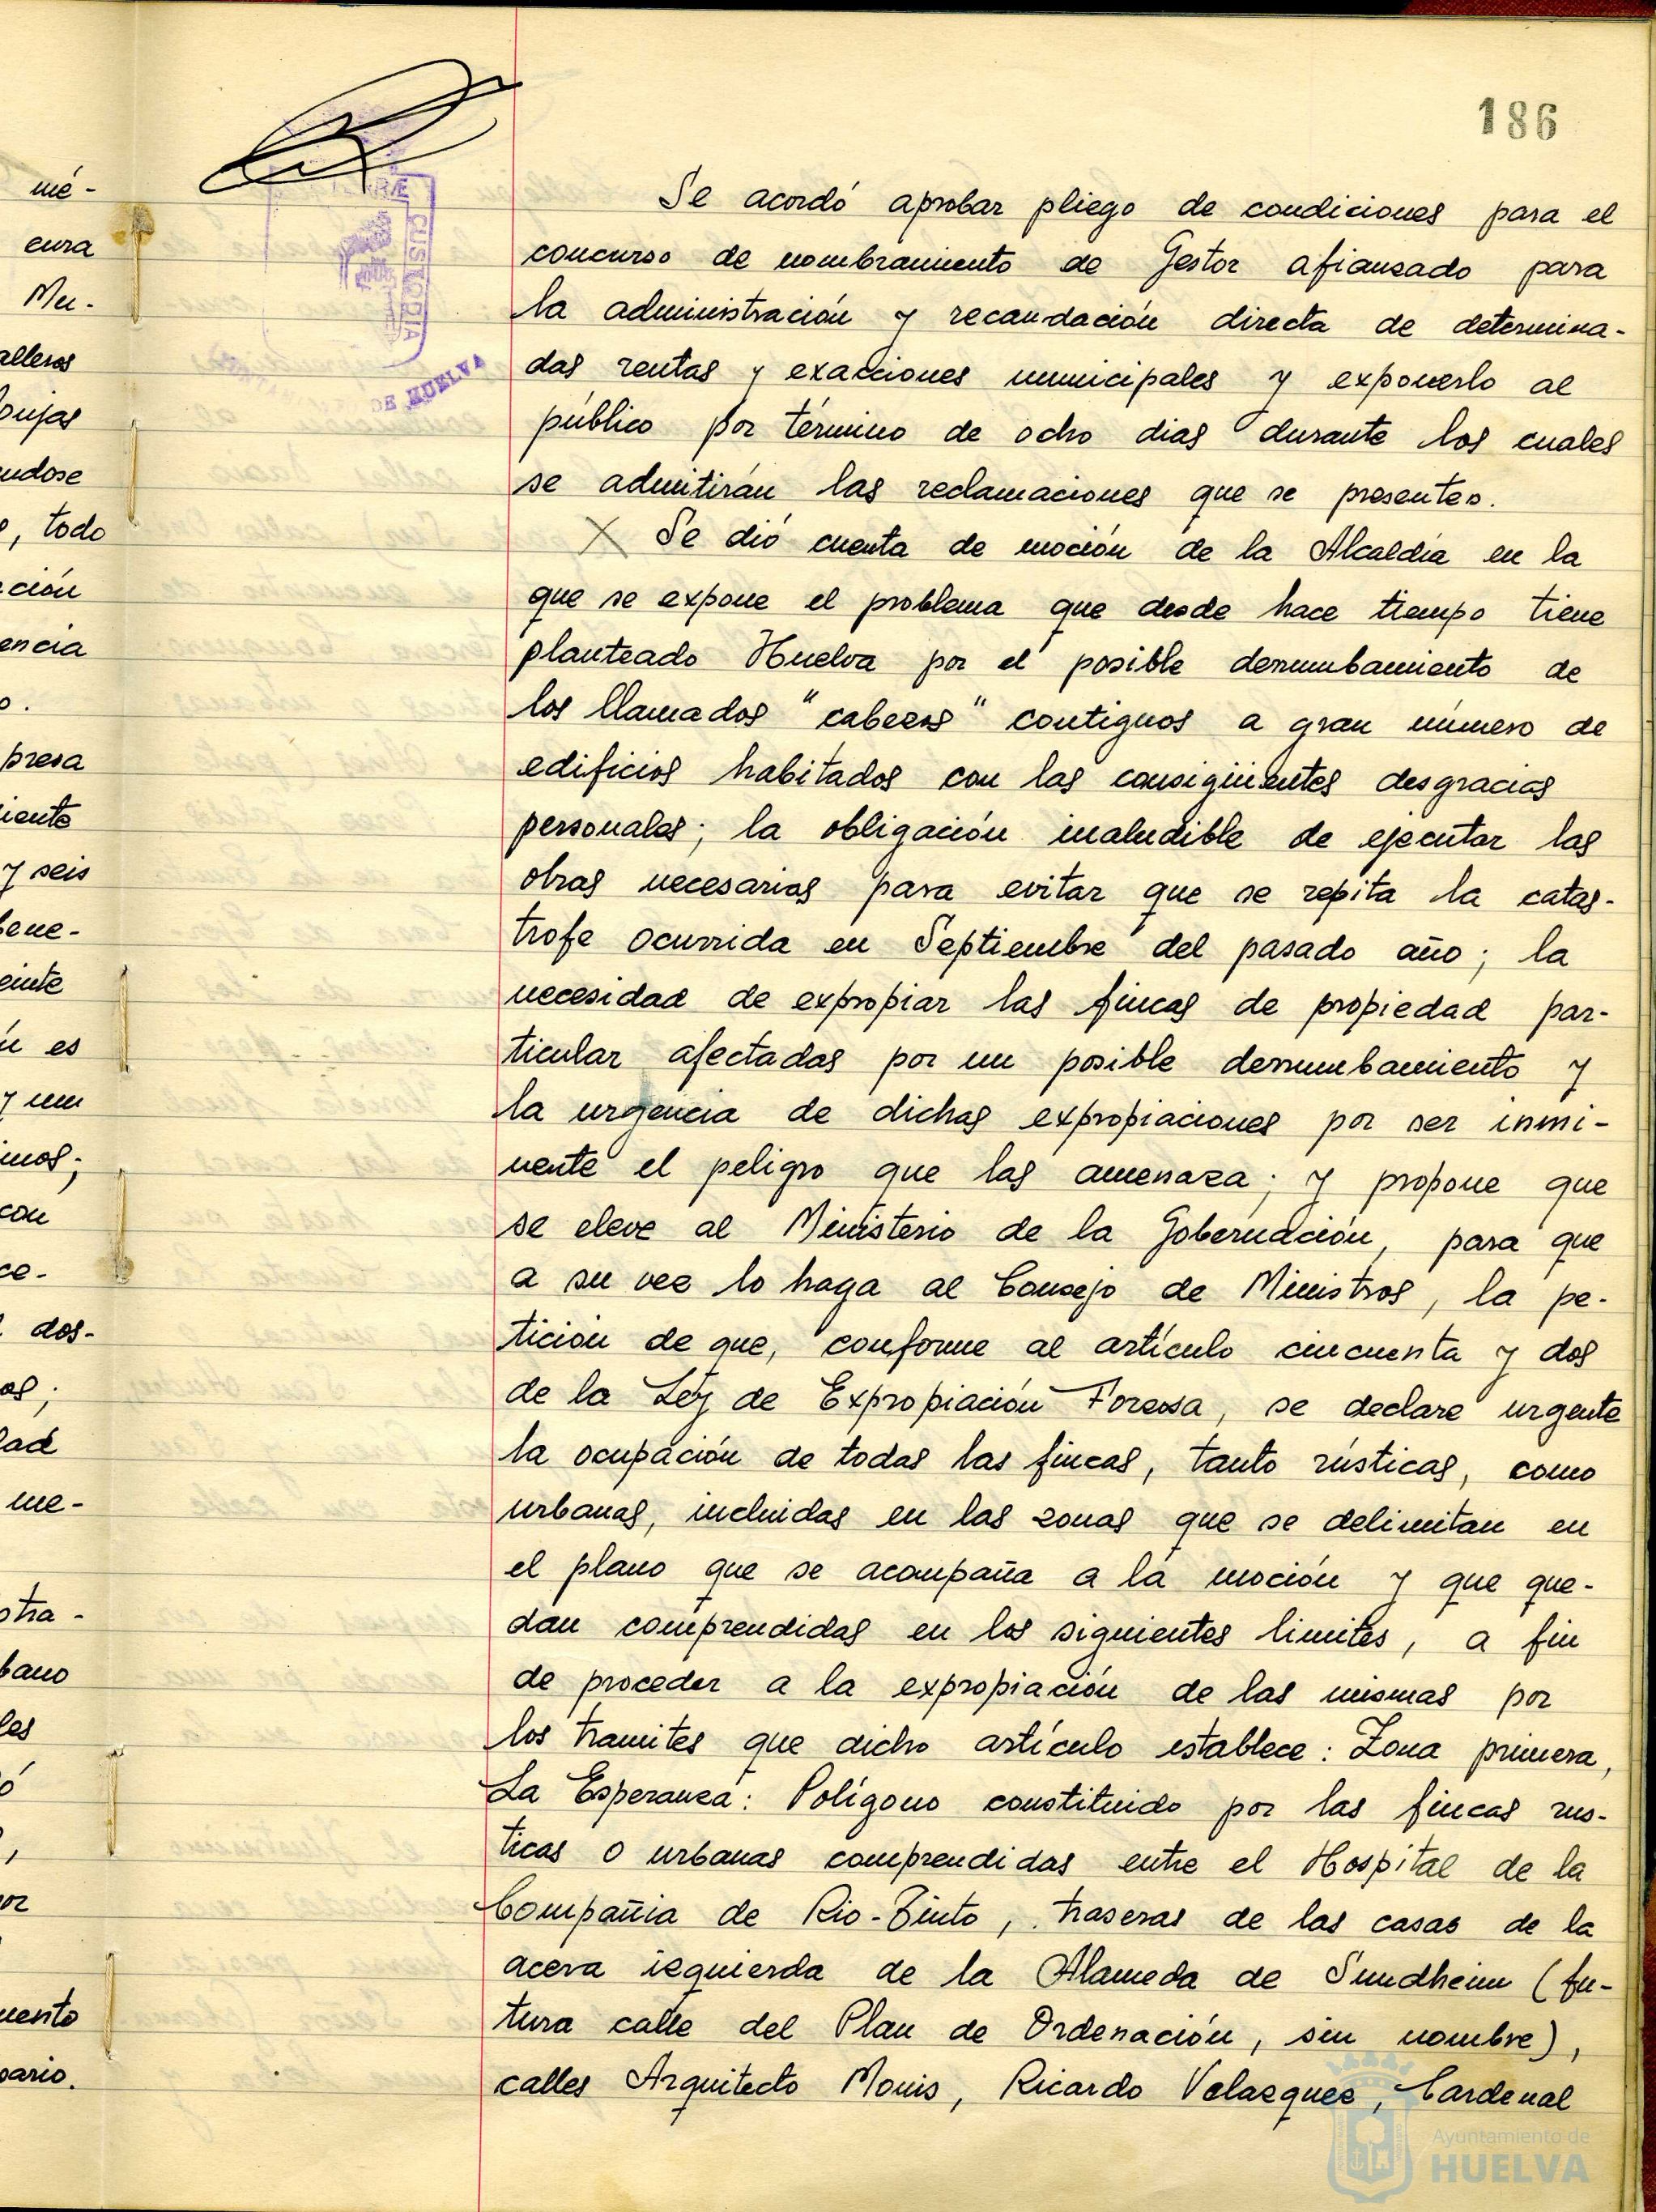 186
mé-
cura
Mu-
alleros
orujas
endose
s, todo
ación
encia
o.
presa
iento
y seis
bene-
einte
ún es
y un
imos;
con
ce-
l dos-
as;
dad
me-
stra-
bano
les
ó
,
or
mento
sario.
PORTAE
CUSTODIA
DE HUELVA
Se acordó aprobar pliego de condiciones para el
concurso de nombramiento de Gestor afianzado para
la administración y recaudación directa de determina-
das rentas y exacciones municipales y exponerlo al
público por término de ocho dias durante los cuales
se admitirán las reclamaciones que se presenten.
X Se dió cuenta de moción de la Alcaldía en la
que se expone el problema que desde hace tiempo tiene
planteado Huelva por el posible derrumbamiento de
los llamados "cabezos" contiguos a gran número de
edificios habitados con las consigüientes desgracias
personales; la obligación inaludible de ejecutar las
obras necesarias para evitar que se repita la catas-
trofe ocurrida en Septiembre del pasado año; la
necesidad de expropiar las fincas de propiedad par-
ticular afectadas por un posible derrumbamiento y
la urgencia de dichas expropiaciones por ser inmi-
nente el peligro que las amenaza; y propone que
se eleve al Ministerio de la Gobernación, para que
a su vez lo haga al Consejo de Ministros, la pe-
tición de que, conforme al artículo cincuenta y dos
de la Ley de Expropiación Forzosa, se declare urgente
la ocupación de todas las fincas, tanto rústicas, como
urbanas, incluidas en las zonas que se delimitan en
el plano que se acompaña a la moción y que que-
dan comprendidas en los siguientes limites, a fin
de proceder a la expropiación de las mismas por
los tramites que dicho artículo establece: Zona primera,
La Esperanza: Polígono constituido por las fincas rus-
ticas o urbanas comprendidas entre el Hospital de la
Compañia de Rio-Tinto, traseras de las casas de la
acera izquierda de la Alameda de Sundheim (fu-
tura calle del Plan de Ordenación, sin nombre),
calles Arquitecto Monis, Ricardo Velazquez, Cardenal
Ayuntamiento de
HUELVA